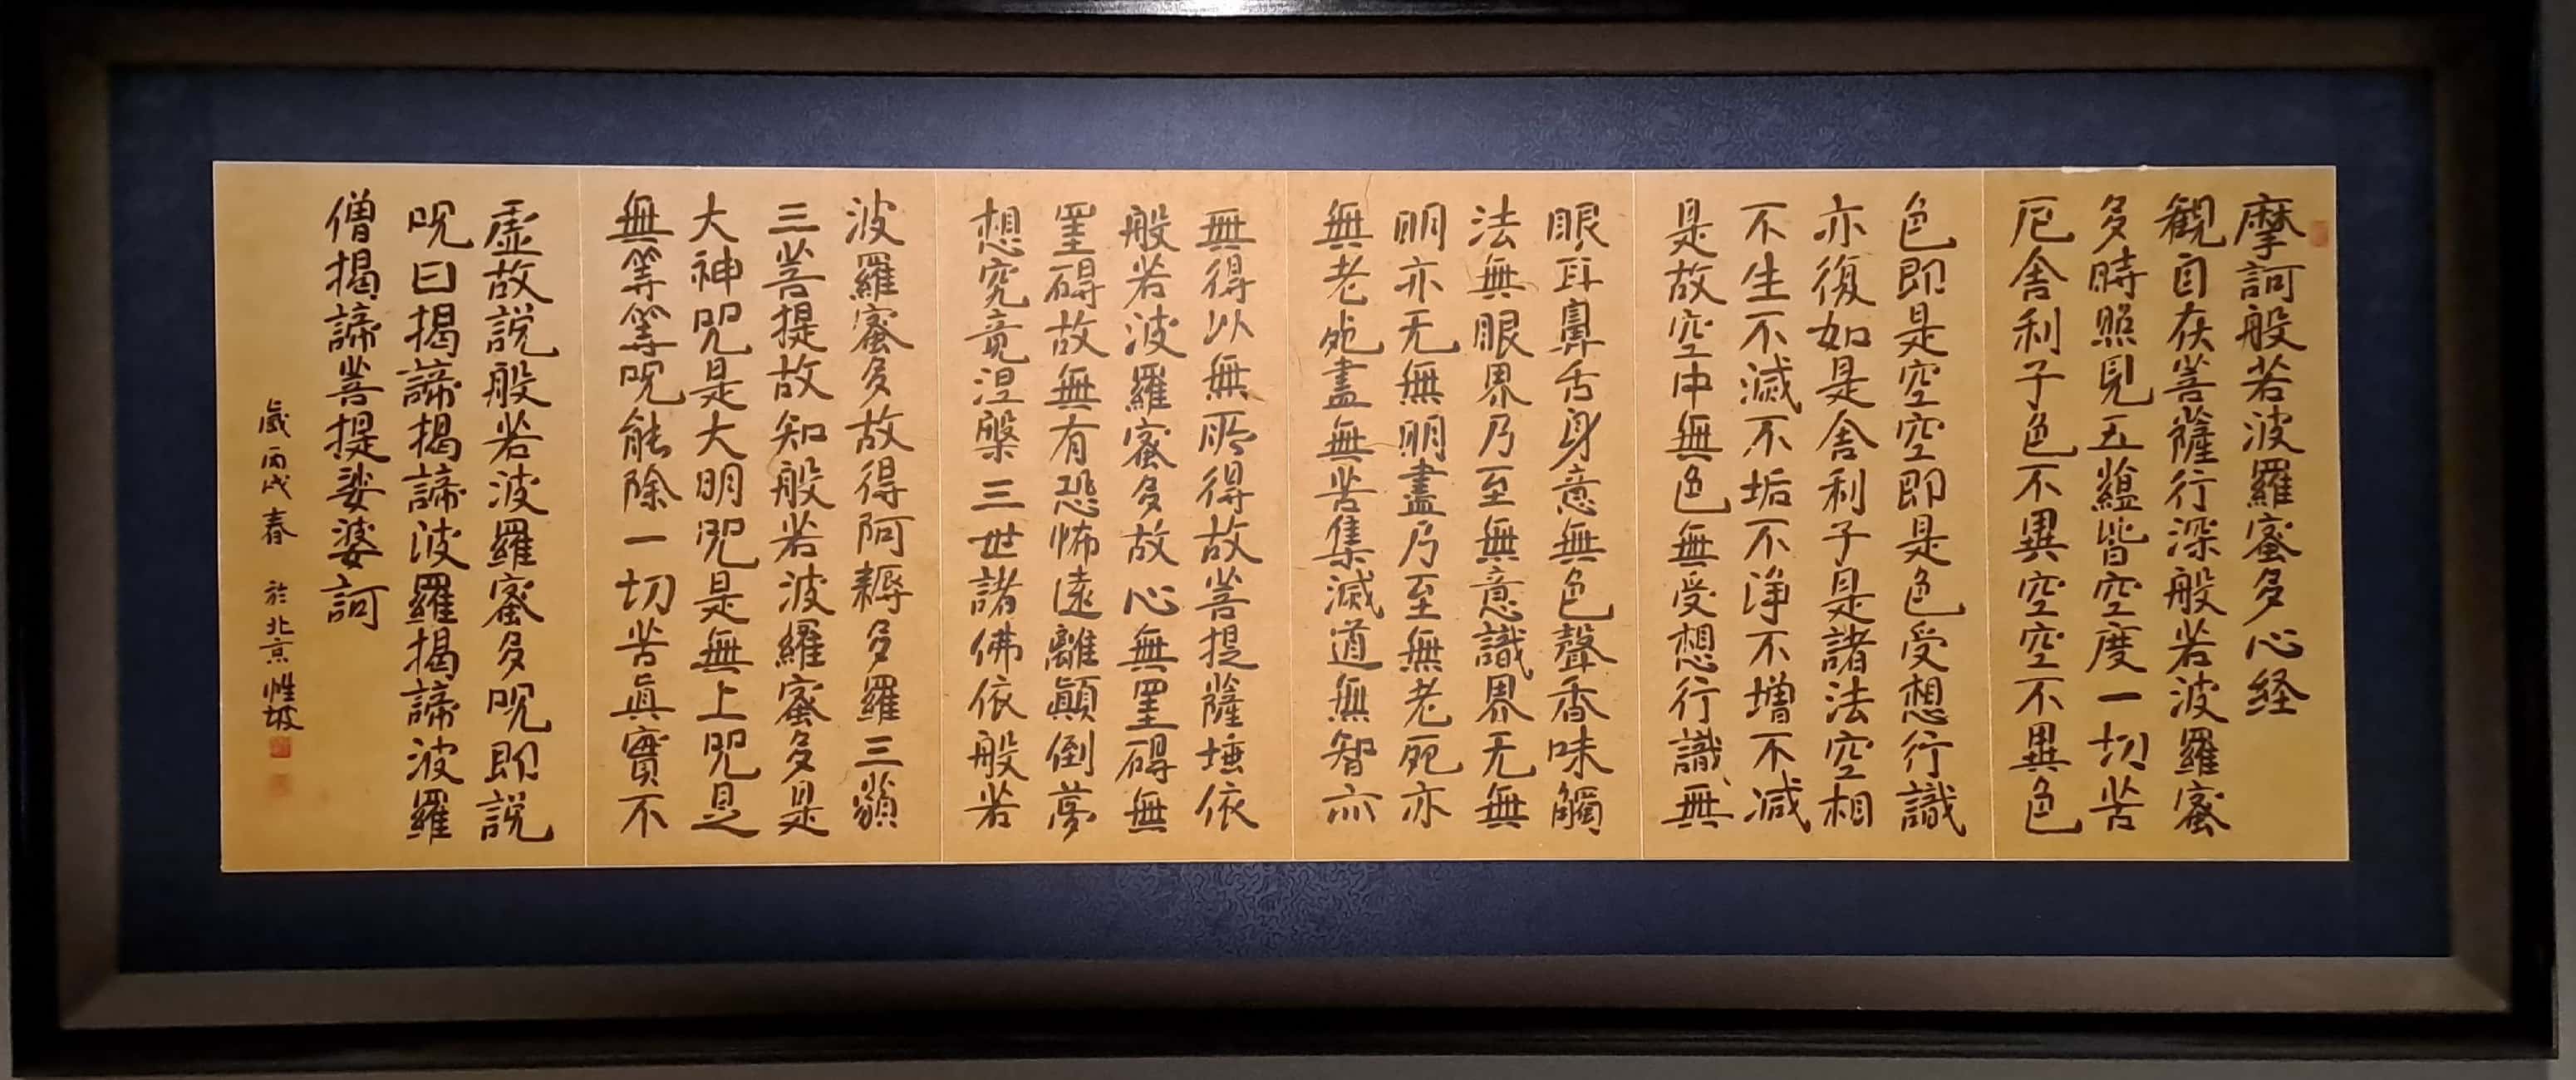 摩訶般若波羅蜜多心経
観自在菩薩行深般若波羅蜜
多時照見五蘊皆空度一切苦
厄舎利子色不異空空不異色
色即是空空即是色受想行識
亦復如是舎利子是諸法空相
不生不滅不垢不浄不増不減
是故空中無色無受想行識無
眼耳鼻舌身意無色聲香味觸
法無眼界乃至無意識界无無
明亦无無明盡乃至無老死亦
無老死盡無苦集滅道無智亦
無得以無所得故菩提薩埵依
般若波羅蜜多故心無罣碍無
罣碍故無有恐怖遠離顛倒夢
想究竟涅槃三世諸佛依般若
波羅蜜多故得阿耨多羅三藐
三菩提故知般若波羅蜜多是
大神咒是大明咒是無上咒是
無等等呪能除一切苦真實不
虚故説般若波羅蜜多呪即説
呪曰揭諦揭諦波羅揭諦波羅
僧揭諦菩提娑婆訶
歳丙戌春 於北京 性坡